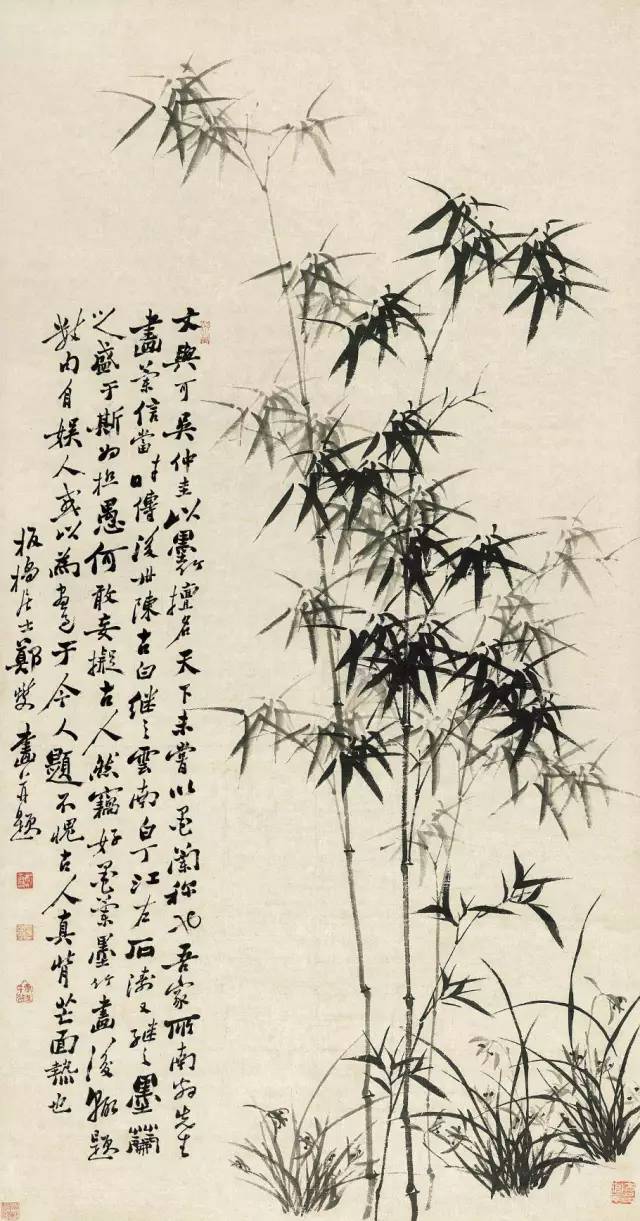 文與可吳仲圭以墨竹擅名天下未嘗以墨蘭稱也吾家所南翁先生
畫蘭信當时傳後世陳古白继之雲南白丁江右石濤又继之墨蘭
之盛于斯为極愚何敢妄擬古人然竊好墨蘭墨竹畫後輒題
內自娛人或以為畫于今人題不愧古人真背芒面熱也
板橋居士鄭燮畫并題